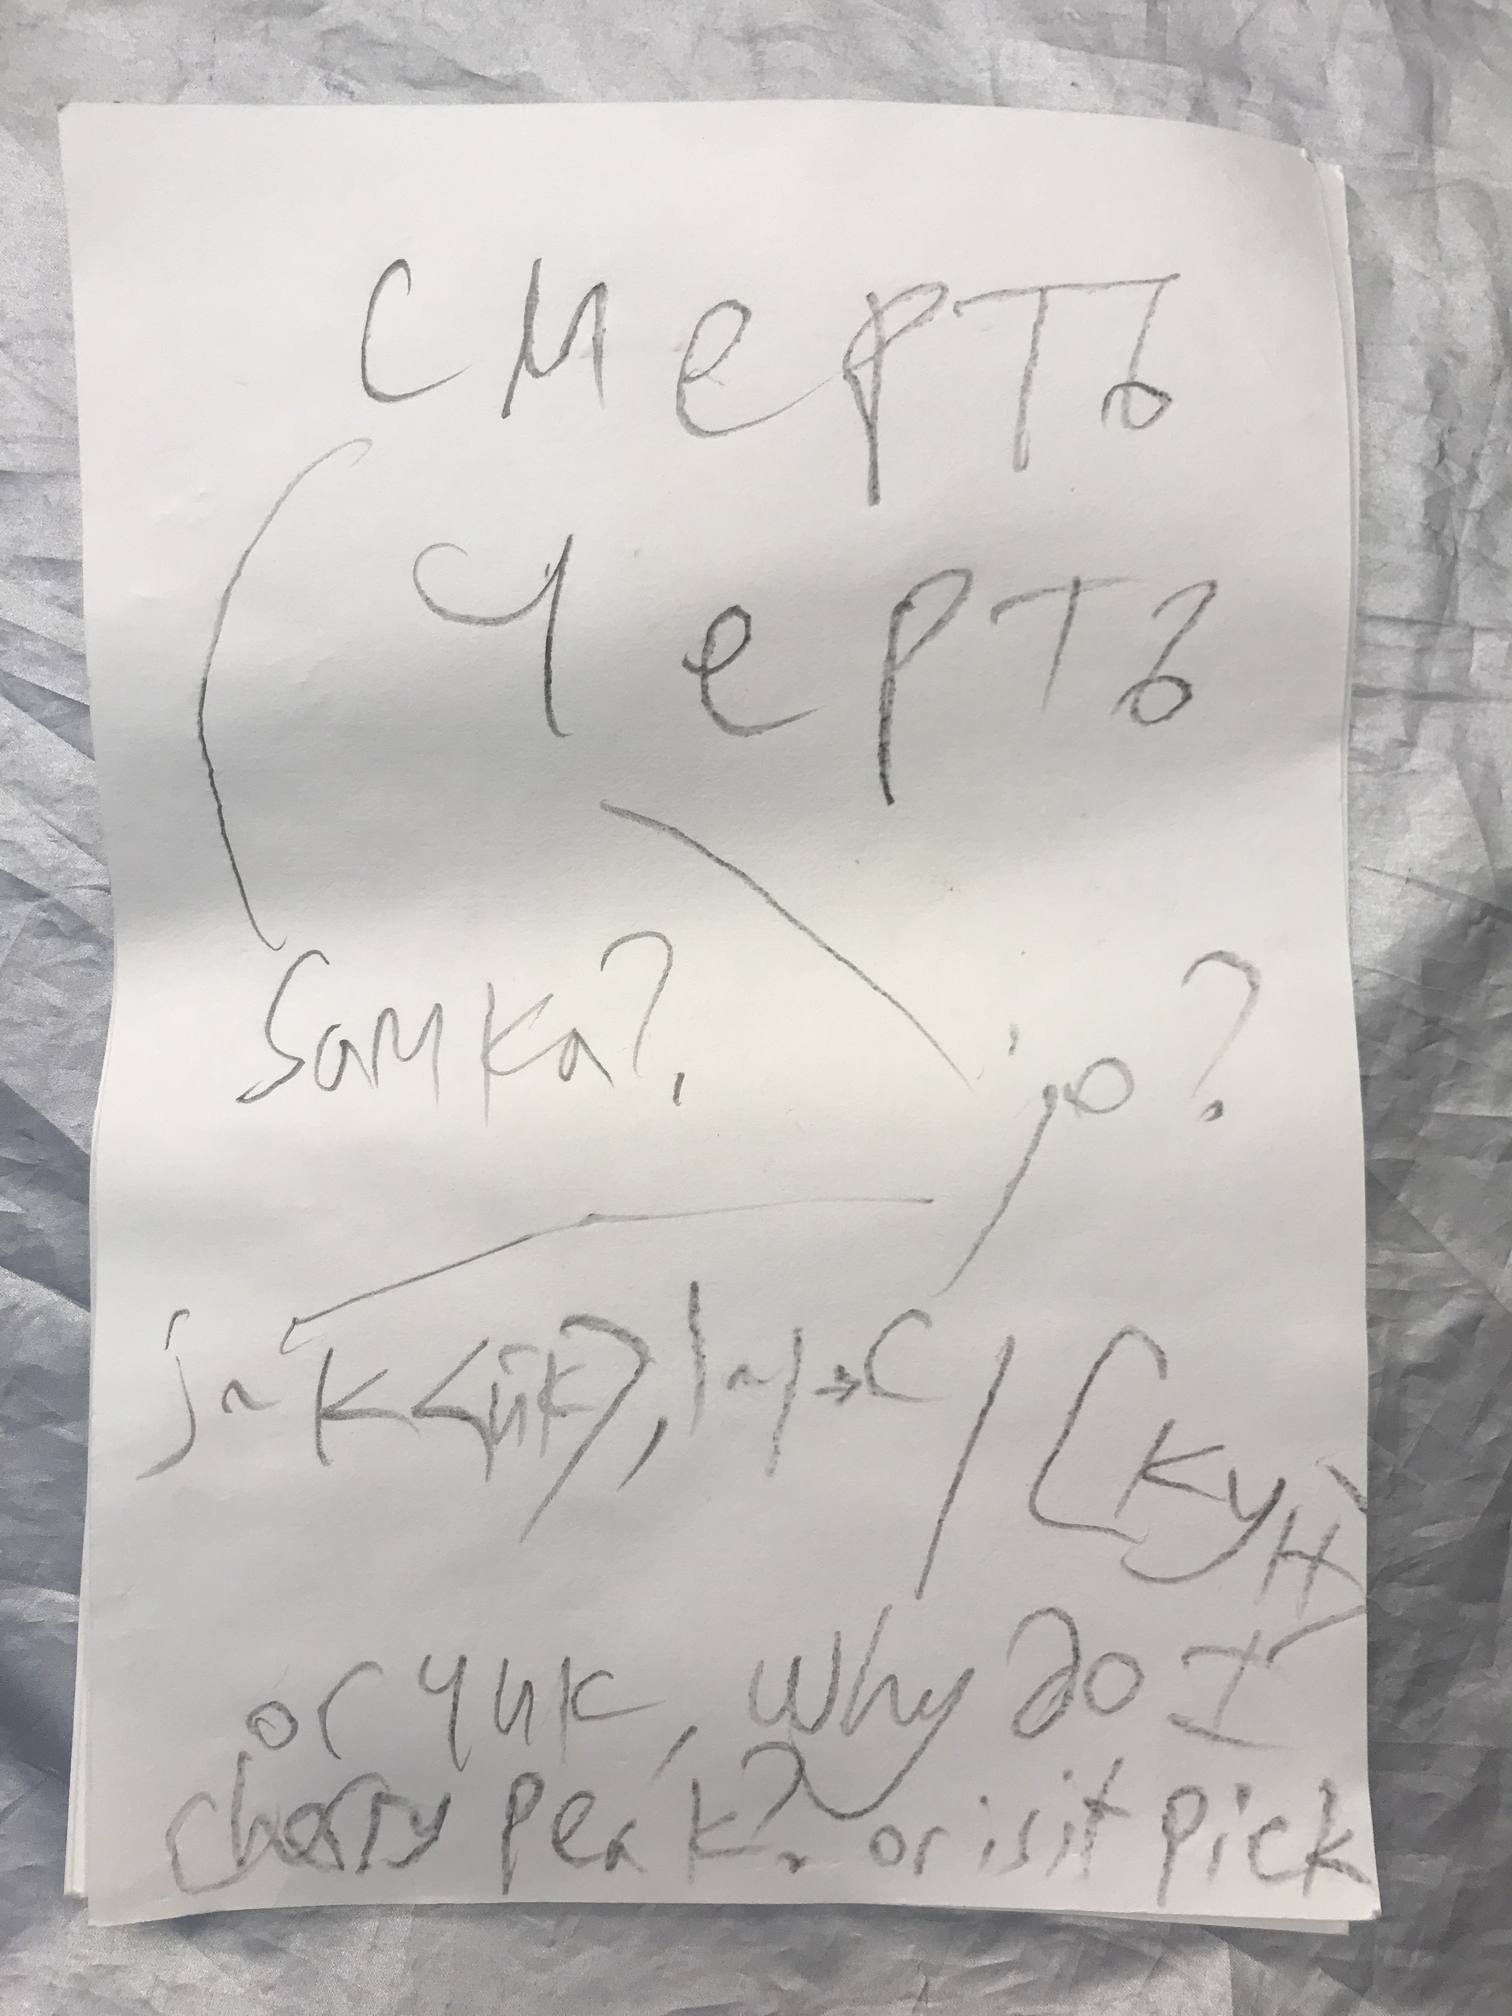 смерть
черть
Samka? jo?
j~K<йк>, |~| → C / [кун
or чик, why do I
cherry peak? or is it pick